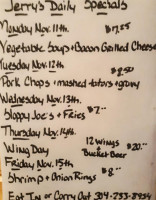 Jerry's Daily Specials
Monday Nov. 11th. $17.85
Vegetable Soup + Bacon Grilled Cheese
Tuesday Nov. 12th $8.50
Pork Chops + mashed taters + gravy
Wednesday Nov. 13th. $7.00
Sloppy Joe's + Fries
Thursday Nov. 14th.
Wing Day 12 Wings + Bucket Beer $20.00
Friday Nov. 15th
Shrimp + Onion Rings $8.00
Eat In or Carry Out 304-233-8934